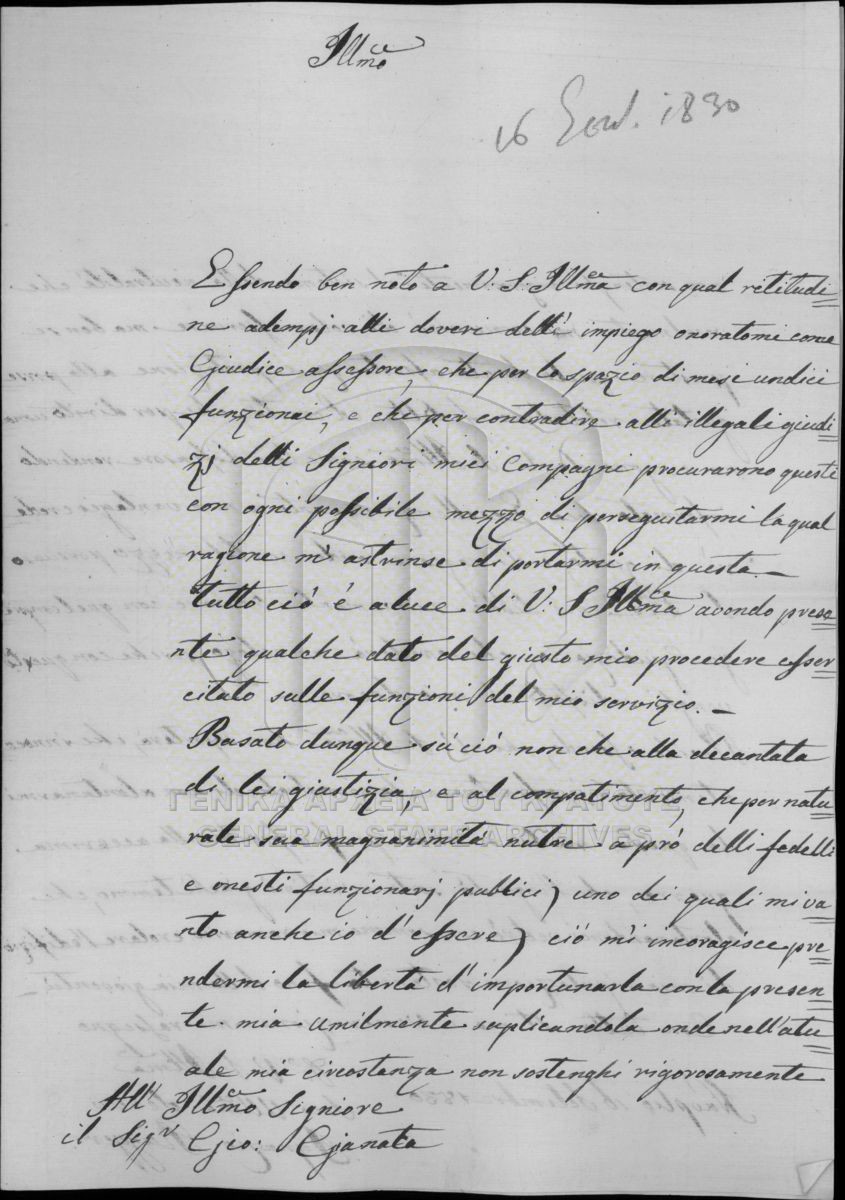 Ill.mo
16 1830
Essendo ben noto a V: S: Ill.ma con qual retitudi=
ne adempj alli doveri dell' impiego onoratomi come
Gjudice assessore, che per lo spazio di mesi undici
funzionai, e che per contradire alli illegali giudi=
zj delli Signiori miei Compagni procurarono questi
con ogni possibile mezzo di perseguitarmi la qual
ragione m' astrinse di portarmi in questa._
Tutto ciò é a luce di V: S Ill.ma avendo prese=
nte qualche dato del giusto mio procedere esser=
citato sulle funzioni del mio servizio._
Basato dunque sú ció non che alla decantata
di lei giustizia, e al compatimento, che per natu=
rale sua magnanimitá nutre a pró delli fedelli
e onesti funzionarj publici) uno dei quali mi va=
nto anche io d' essere) ció m'i incoragisce pre=
ndermi la libertá d' importunarla con la presen=
te mia umilmente suplicandola onde nell' atu=
ale mia circostanza non sostenghi rigorosamente
All' Ill.mo Signiore
il Sigr Gjio: Gjanata
ΓΕΝΙΚΑ ΑΡΧΕΙΑ ΤΟΥ ΚΡΑΤΟΥΣ
GENERAL STATE ARCHIVES